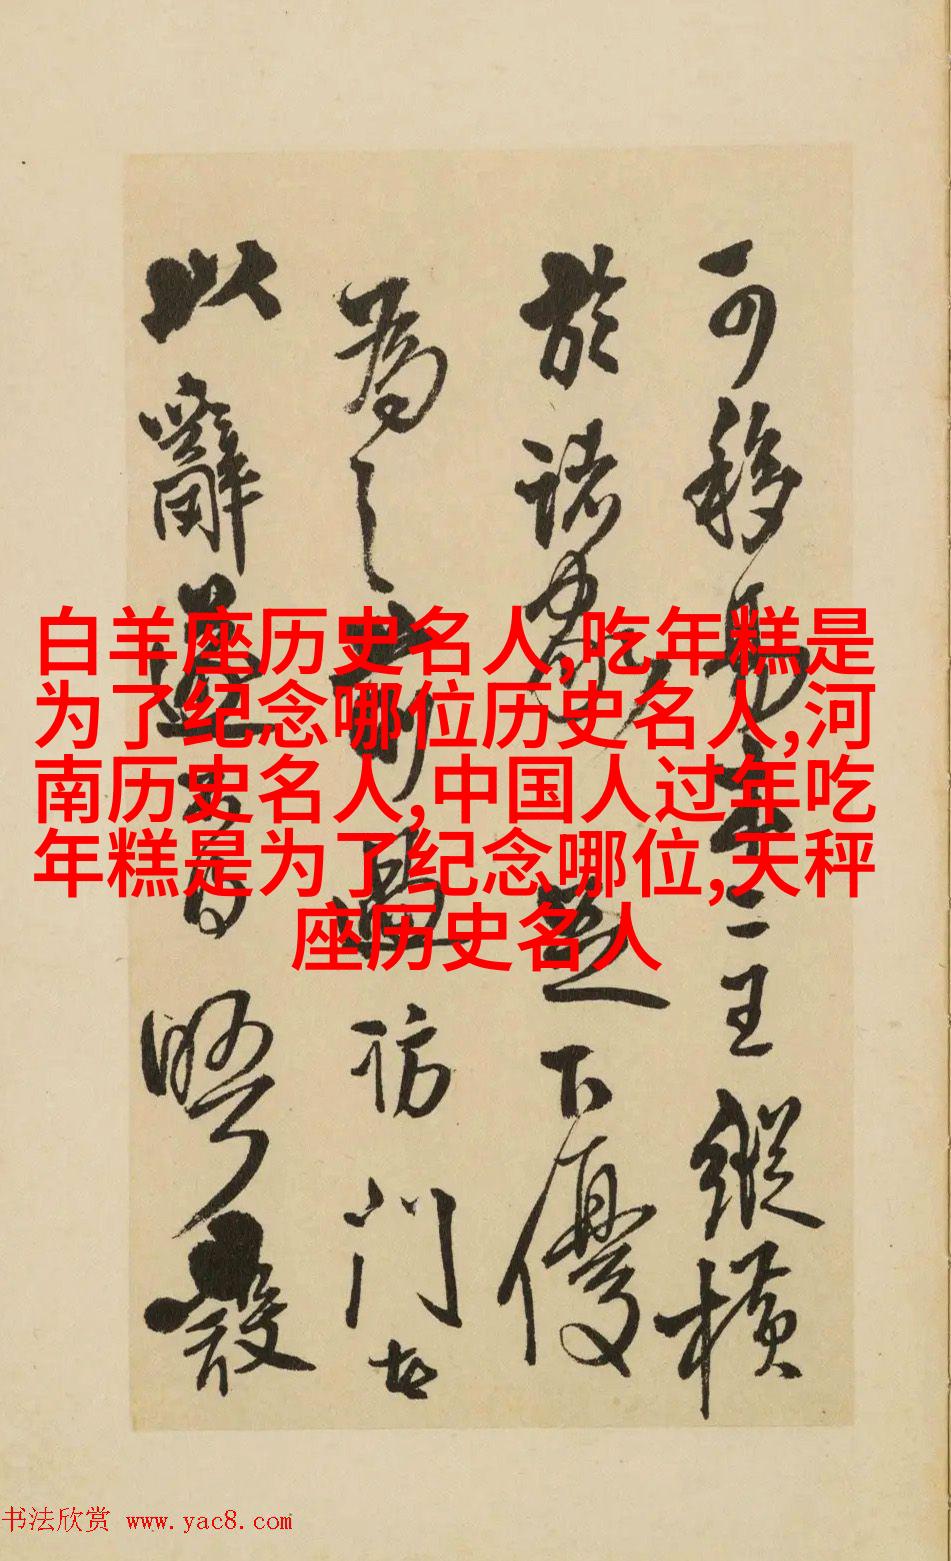 可移易二王縱橫
於諸家下優
為之訪門
以辭
白羊座历史名人,吃年糕是
为了纪念哪位历史名人,河
南历史名人,中国人过年吃
年糕是为了纪念哪位,天秤
座历史名人
书法欣赏 www.yac8.com